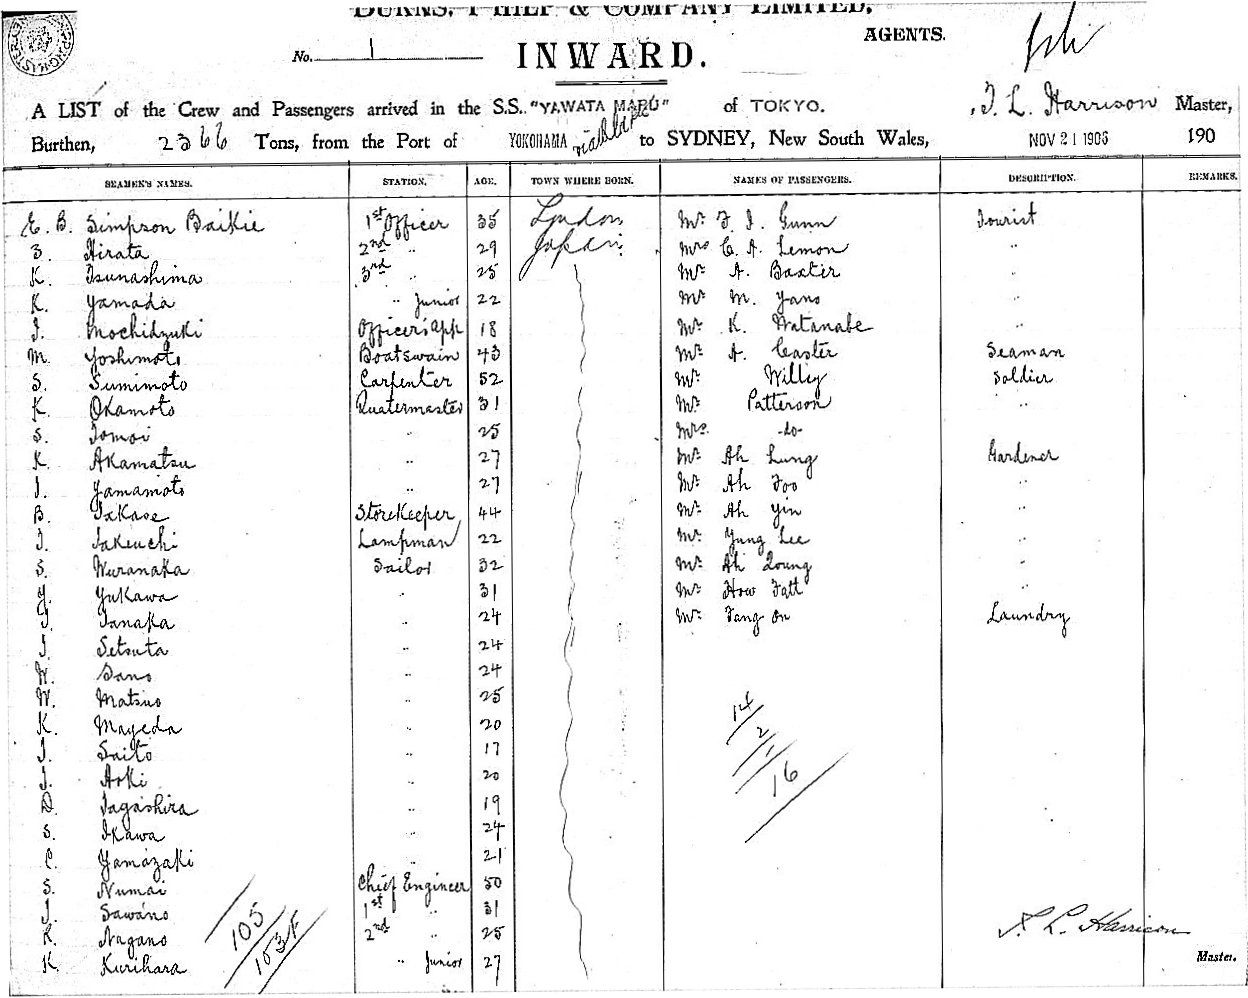 BURNS, PHILP & COMPANY LIMITED,
AGENTS.
No. 1
INWARD.
A LIST of the Crew and Passengers arrived in the S.S. "YAWATA MARU" of TOKYO. J. L. Harrison Master,
Burthen, 2366 Tons, from the Port of YOKOHAMA via to SYDNEY, New South Wales, NOV 21 1906 190
SEAMEN'S NAMES. STATION. AGE. TOWN WHERE BORN. NAMES OF PASSENGERS. DESCRIPTION. REMARKS.
E. B. Simpson Baikie 1st Officer 35 London Mr F. J. Gunn Tourist
Z. Hirata 2nd " 29 Japan Mrs C. A. Lemon "
K. Tsunashima 3rd " 25 Mr A. Baxter "
K. Yamada " Junior 22 Mr M. Yano "
J. Mochidzuki Officer's App 18 Mr K. Watanabe "
M. Yoshimoto Boatswain 43 Mr A. Caster Seaman
S. Sumimoto Carpenter 52 Mr Willey Soldier
K. Okamoto Quatermaster 31 Mr Patterson "
S. Tomoi " 25 Mrs -do-
K. Akamatsu " 27 Mr Ah Lung Gardener
J. Yamamoto " 27 Mr Ah Foo "
B. Takase Storekeeper 44 Mr Ah Yin "
J. Takeuchi Lampman 22 Mr Yung Lee "
S. Muranaka Sailor 32 Mr Ah Young "
Y. Yukawa " 31 Mr How Fatt "
T. Tanaka " 24 Mr Fang On Laundry
J. Setsuta " 24
W. Sano " 24
W. Matsuo " 25
K. Mayeda " 20
J. Saito " 17
J. Aoki " 20
D. Tagashira " 19
S. Ikawa " 24
C. Yamazaki " 21
S. Numai Chief Engineer 50
J. Sawano 1st " 31
K. Nagano 2nd " 25
K. Kurihara " Junior 27
14
2
1
16
105
103
J. L. Harrison
Master.